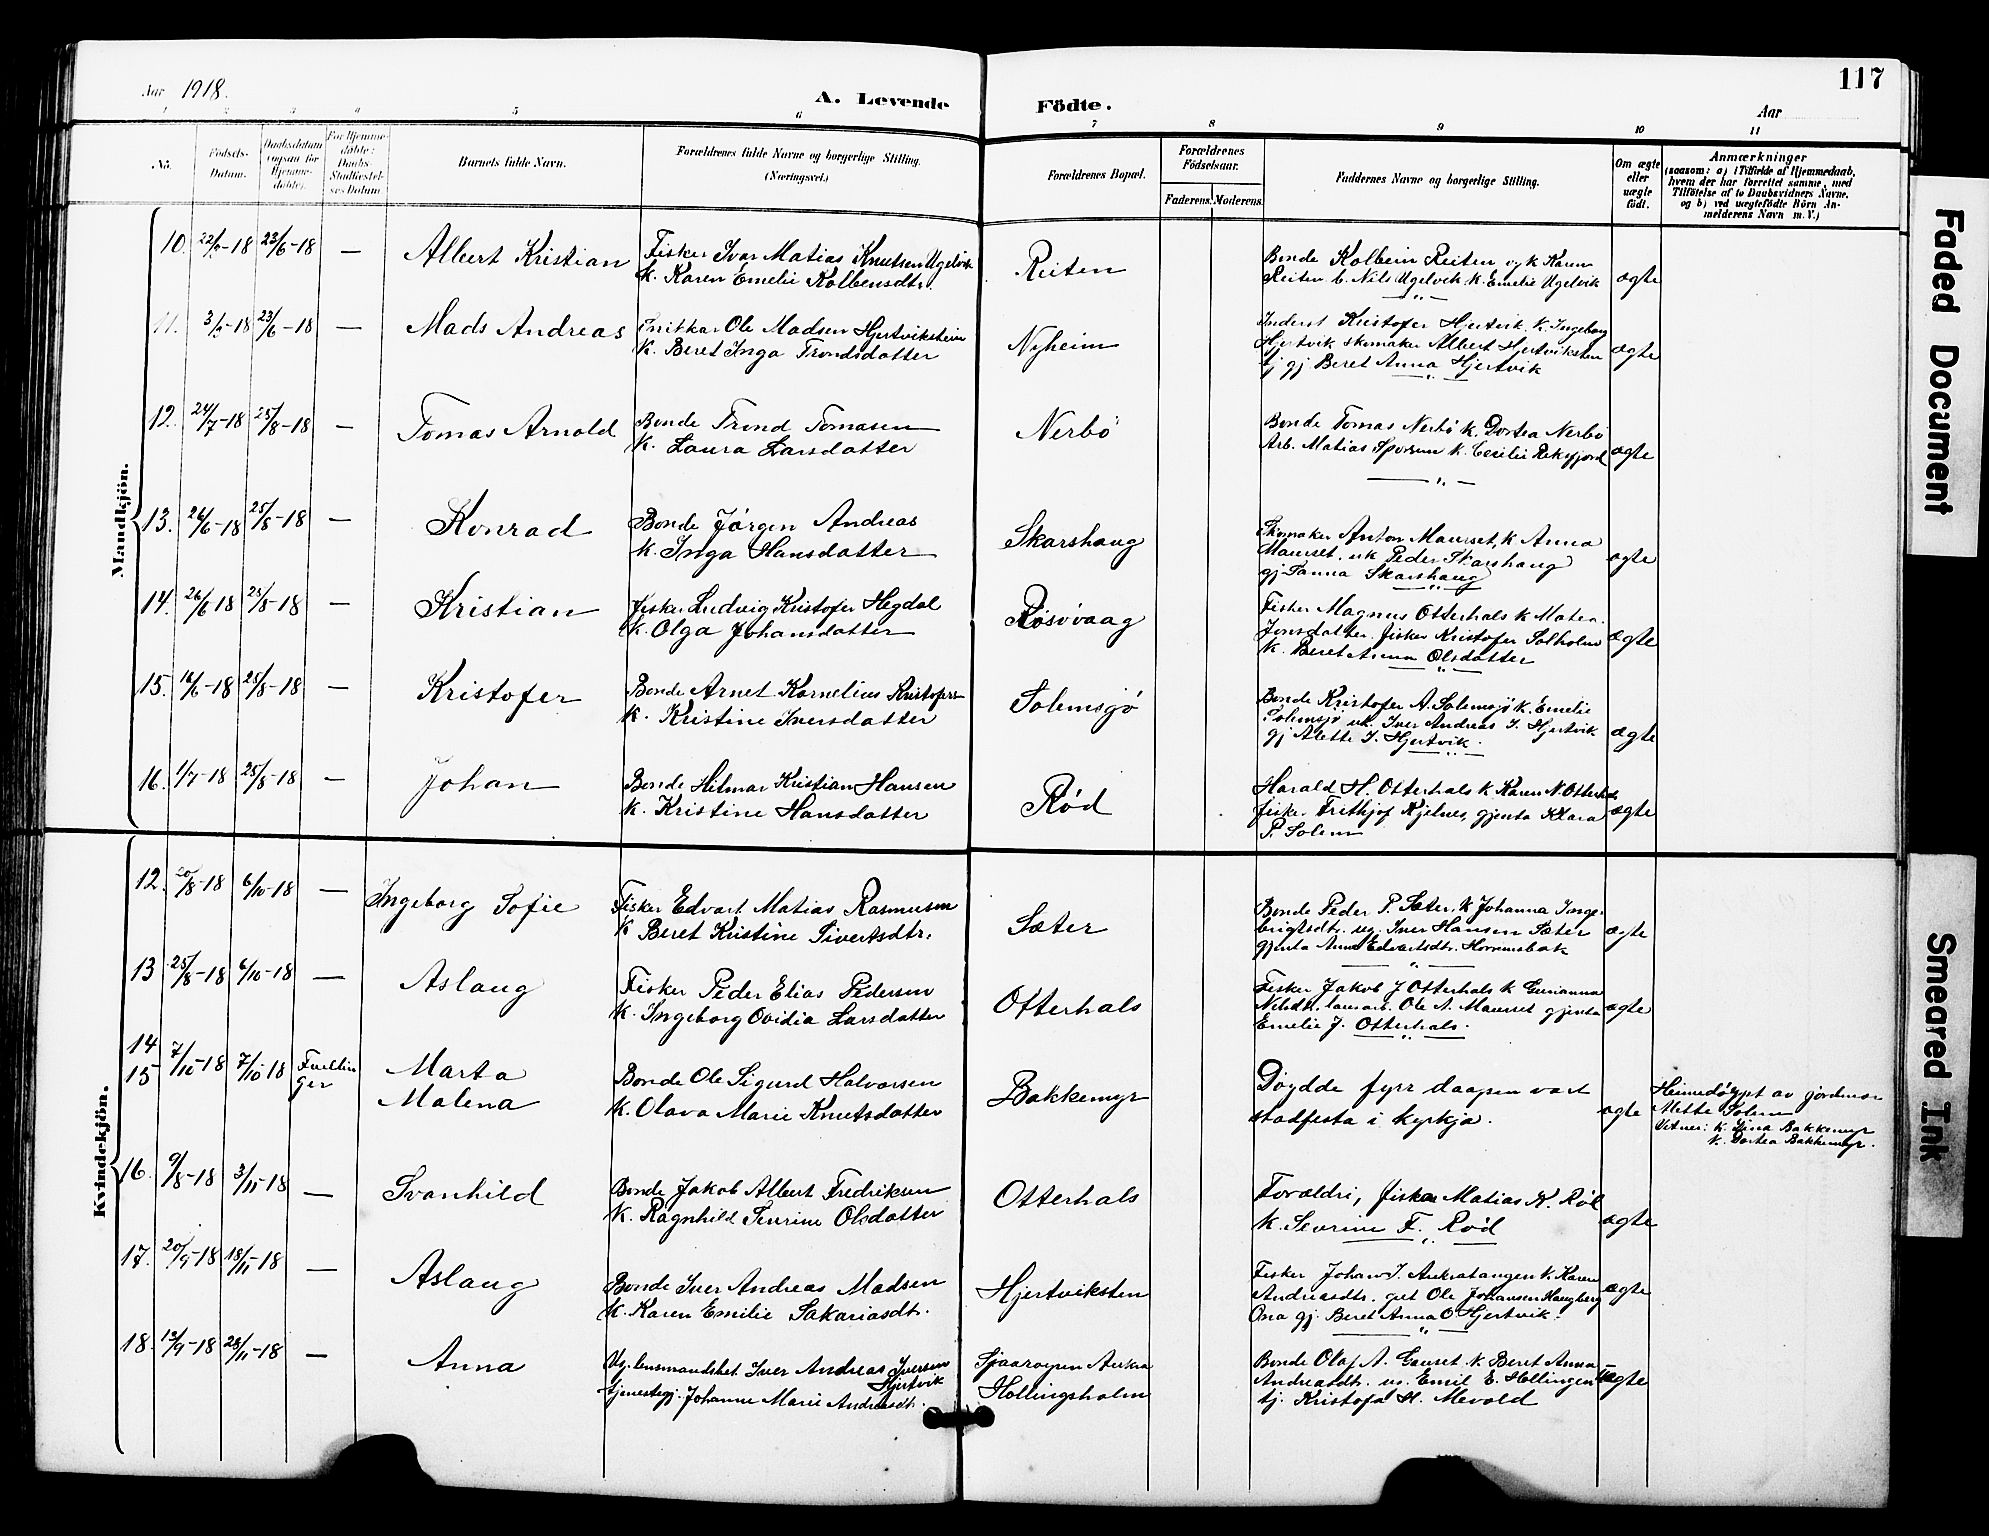 Aar 1918.
A. Levende
Födte.
117
Aar
1 2 3 4 5 6 7 8 9 10 11
No.
Födsels-
Datum.
Daabsdatum
(ogsaa for
Hjemme-
døbte).
For Hjemme-
døbte:
Daabs-
Stadfæstel-
ses Datum
Barnets fulde Navn.
Forældrenes fulde Navne og borgerlige Stilling.
(Næringsvei.)
Forældrenes Bopæl.
Forældrenes
Födselsaar.
Faderens. Moderens.
Faddernes Navne og borgerlige Stilling.
Om ægte
eller
uægte
födt.
Anmærkninger
(saasom: a) i Tilfælde af Hjemmedaab,
hvem der har forrettet samme, med
Tilföielse af to Daabsvidners Navne.
og b) ved uægtefödte Börn An-
melderens Navn m. V.)
Mandkjön.
10. 23/6-18 — Albert Kristian
Fisker Ivar Matias Knutsen Ugelvik
k. Karen Emelie Kolbensdtr.
Reiten
Bonde Kolbein Reiten og k Karen
Reiten b. Nils Ugelvik k. Emelie Ugelvik
ægte
11. 23/6-18 — Mads Andreas
Ole Madsen Hjertvikstein
k. Beret Inga Trondsdatter
Nyheim
Inderst Kristofer Hjertvik k. Ingeborg
Hjertvik skomaker Albert Hjertviksten
tj gj Beret Anna Hjertvik
ægte
12. 24/7-18 25/8-18 — Tomas Arnold
Bonde Trond Tomasen
k. Laura Larsdatter
Nerbö
Bonde Tomas Nerbö k. Dortea Nerbö
Arb. Matias k. Cecilie
ægte
13. 26/6-18 25/8-18 — Konrad
Bonde Jørgen Andreas
k. Inga Hansdatter
Skarshaug
Skomaker Anton Maurset, k Anna
Maurset. uk Peder Skarshaug
gj. Skarshaug
ægte
14. 26/6-18 25/8-18 — Kristian
Fisker Ludvig Kristofer Hegdal
k. Olga Johansdatter
Røsøvaag
Fisker Magnus Otterhals k Matea
Jonsdatter. fisker Kristofer Solholm
k. Beret Anna Olsdatter
ægte
15. 16/6-18 25/8-18 — Kristofer
Bonde Arnet Kornelius Kristofers
k. Kristine Iversdatter
Solemsjö
Bonde Kristofer A. Solemsjö k. Emelie
Solemsjö uk. Iver Andreas I. Hjertvik
gj Alette I. Hjertvik.
ægte
16. 1/7-18 25/8-18 — Johan
Bonde Hilmar Kristian Hansen
k. Kristine Hansdatter
Rød
Harald H. Otterhals k Karen N. Otterhals
fisker Frithjof Kjelnes, gjenta Klara
P. Solem
ægte
Kvindekjön.
12. 20/8-18 6/10-18 — Ingeborg Sofie
Fisker Edvart Matias Rasmussen
k Beret Kristine Sivertsdtr.
Sæter
Bonde Peder P. Sæter. k Johanna Inge-
brigtsdtr. ug. Iver Hansen Sæter
gjenta Anna Edvartsdtr. Horremsbak
ægte
13 25/8-18 6/10-18 — Aslaug
Fisker Peder Elias Pedersen
k. Ingeborg Ovidia Larsdatter
Otterhals
Fisker Jakob J Otterhals k Gurianna
Nilsdtr. Ole A. Maurset gjenta
Emelie J. Otterhals.
ægte
14
15 7/10-18 7/10-18
Marta
Malena
Bonde Ole Sigurd Halvorsen
k. Olava Marie Knutsdatter
Bakkemyr
Døydde fyrr daapen vart
stadfesta i kyrkja.
ægte
Heimedøypt av jordmor
Mette Solem
Vitner: k. Lina Bakkemyr
k. Dortea Bakkemyr.
16. 9/8-18 3/11-18 — Svanhild
Bonde Jakob Albert Fredriksen
k. Ragnhild Severine Olsdatter
Otterhals
Forældri, fisker Matias K. Röd
k. Severine F. Rød
ægte
17. 20/9-18 18/11-18 — Aslaug
Bonde Iver Andreas Madsen
k. Karen Emilie Sakariasdtr.
Hjertviksten
Fisker Johan J. Aukratangen k. Karen
Andreasdtr. gst Ole Johansen Haugberg
Ona gj. Beret Anna O Hjertvik.
ægte
18. 13/9-18 28/11-18 — Anna
Ug. lensmandsbet. Iver Andreas Iversen
Hjertvik
tjenestegj. Johanne Marie Andreasdtr.
Aukra
Hollingsholm
Bonde Olaf A. Gauset k Beret Anna
Andreasdtr. us. Emil E. Hollingen
tj. Kristofa H. Mevold
uægte
Faded Document
Smeared Ink